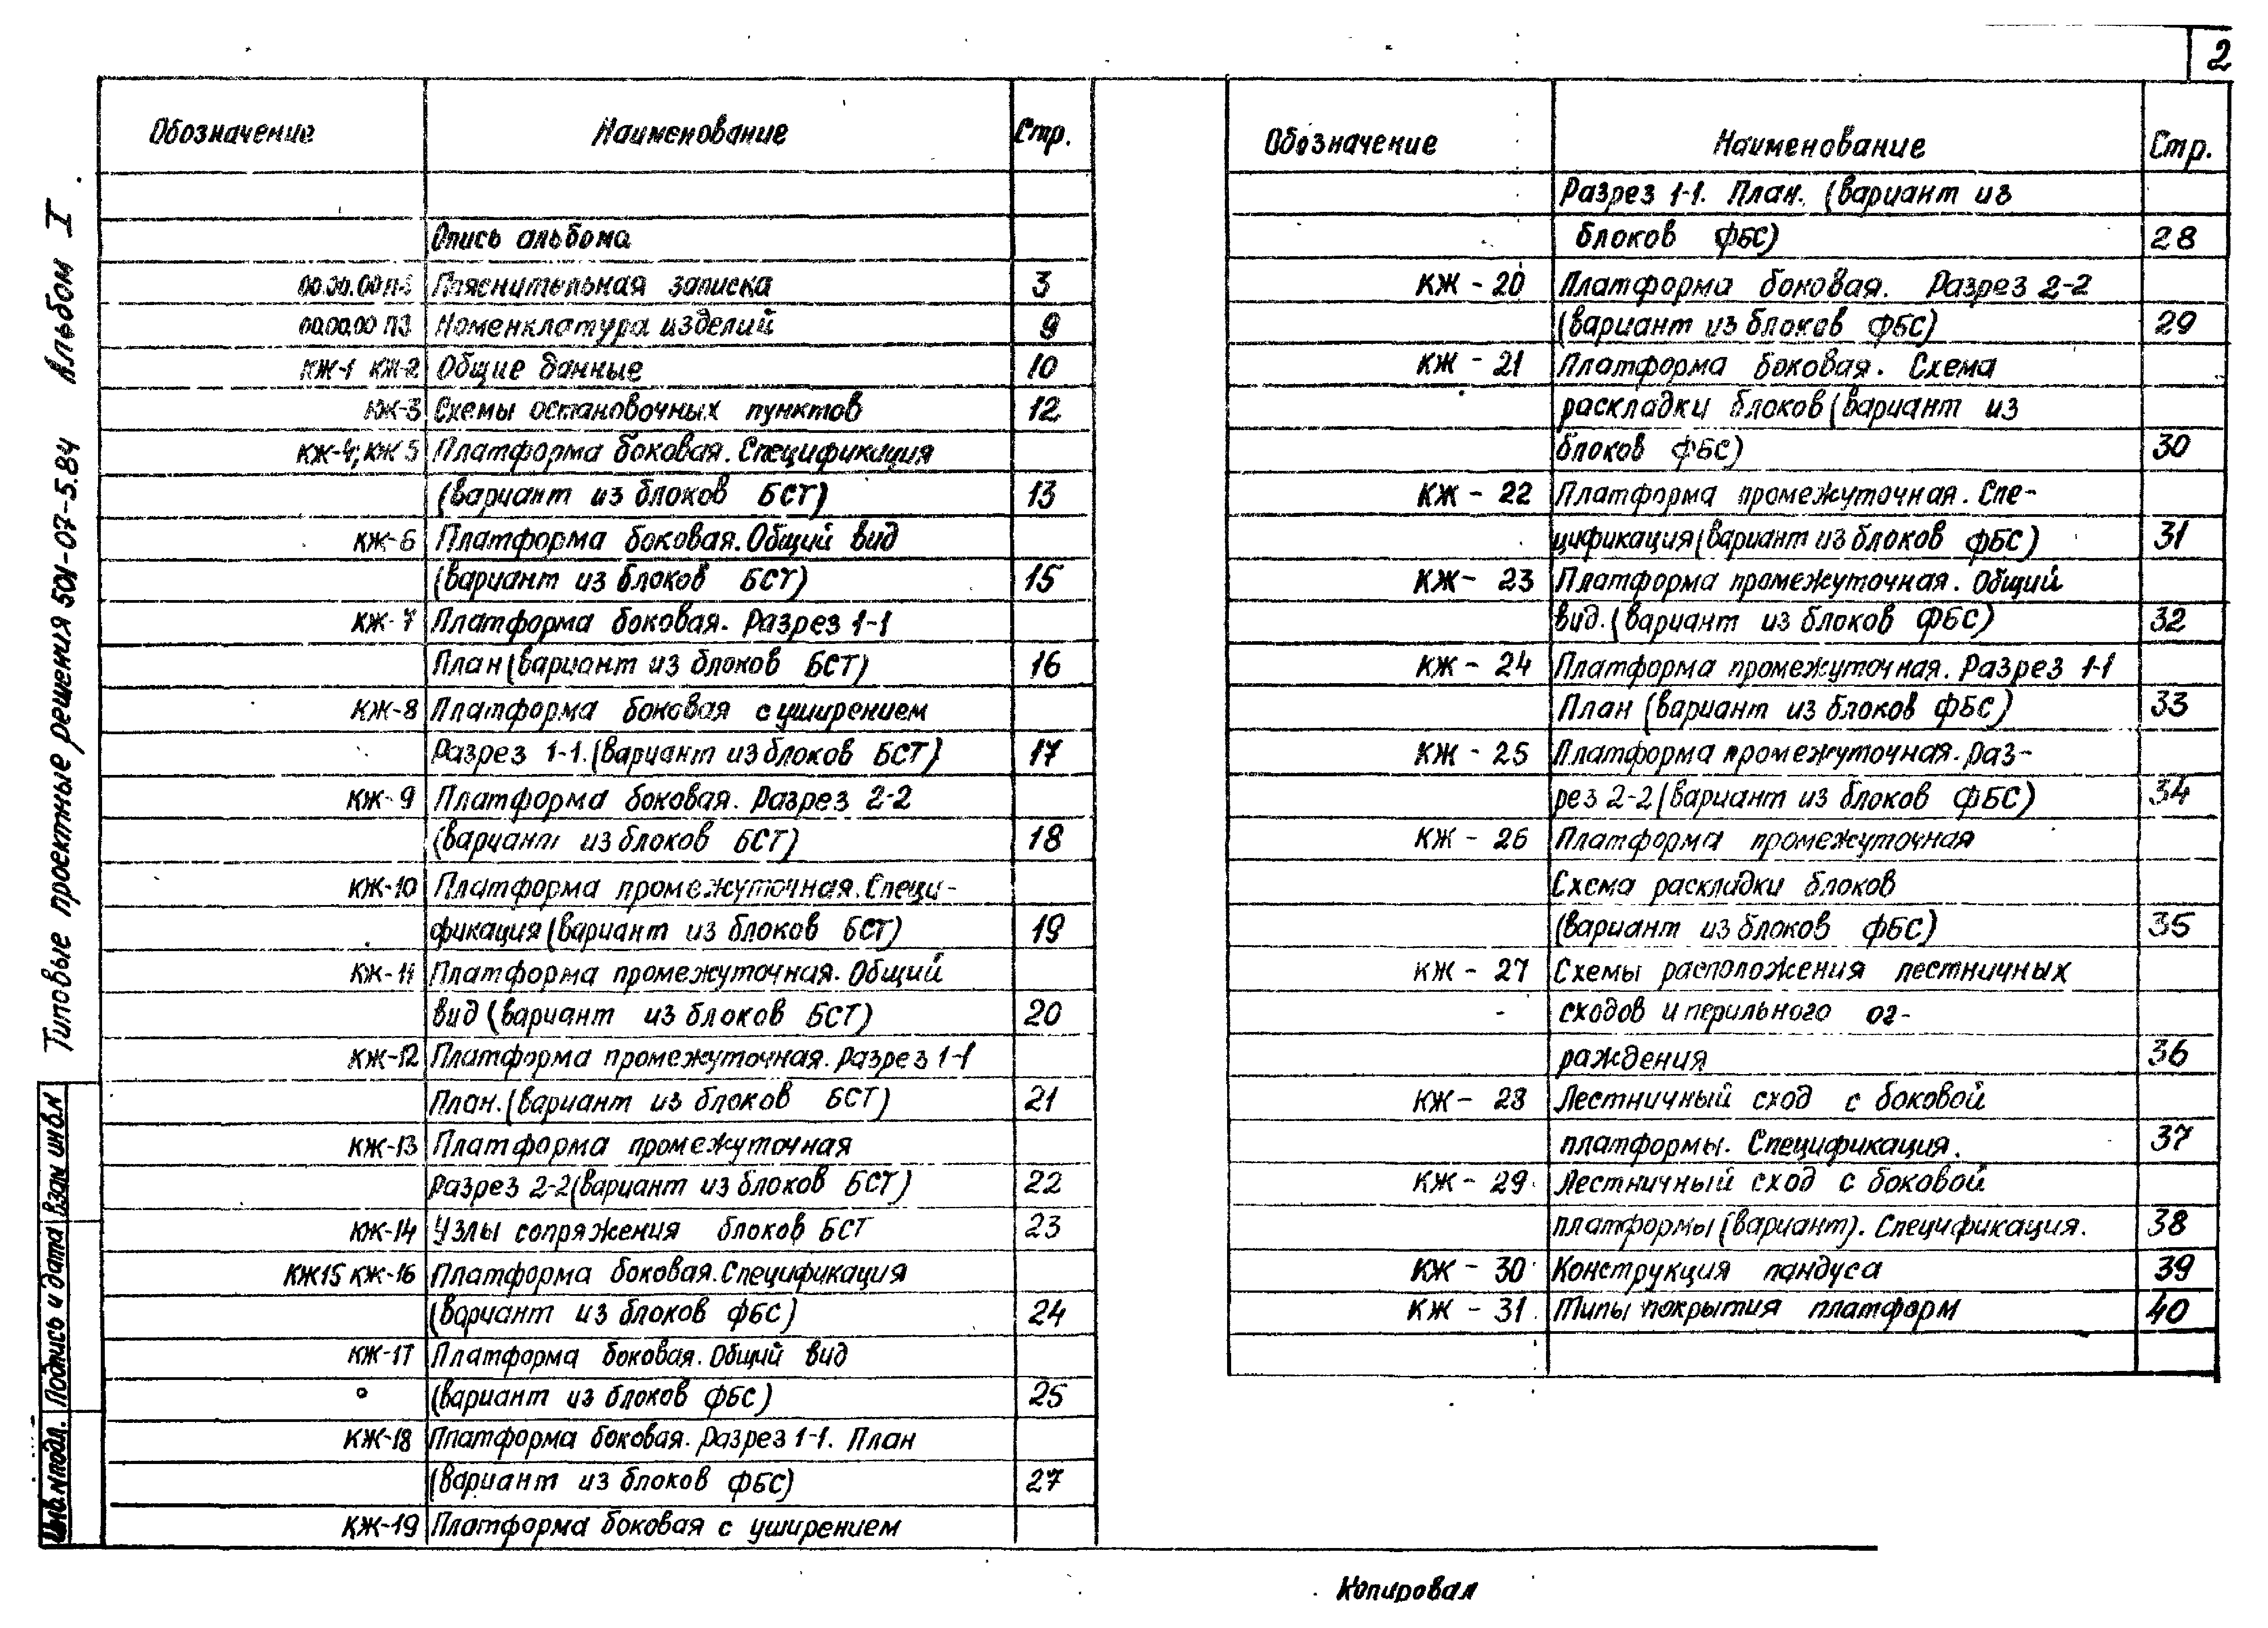 2
Типовые проектные решения 501-07-5.84 Альбом I
Обозначение Наименование Стр.
Опись альбома
00.00.00 ПЗ Пояснительная записка 3
00.00.00 ПЗ Номенклатура изделий 9
КЖ-1 КЖ-2 Общие данные 10
КЖ-3 Схемы остановочных пунктов 12
КЖ-4; КЖ 5 Платформа боковая. Спецификация
(вариант из блоков БСТ) 13
КЖ-6 Платформа боковая. Общий вид
(вариант из блоков БСТ) 15
КЖ-7 Платформа боковая. Разрез 1-1
План (вариант из блоков БСТ) 16
КЖ-8 Платформа боковая с уширением
Разрез 1-1. (вариант из блоков БСТ) 17
КЖ-9 Платформа боковая. Разрез 2-2
(вариант из блоков БСТ) 18
КЖ-10 Платформа промежуточная. Специ-
фикация (вариант из блоков БСТ) 19
КЖ-11 Платформа промежуточная. Общий
вид (вариант из блоков БСТ) 20
КЖ-12 Платформа промежуточная. Разрез 1-1
План. (вариант из блоков БСТ) 21
КЖ-13 Платформа промежуточная
Разрез 2-2 (вариант из блоков БСТ) 22
КЖ-14 Узлы сопряжения блоков БСТ 23
КЖ15 КЖ-16 Платформа боковая. Спецификация
(вариант из блоков ФБС) 24
КЖ-17 Платформа боковая. Общий вид
(вариант из блоков ФБС) 25
КЖ-18 Платформа боковая. Разрез 1-1. План
(вариант из блоков ФБС) 27
КЖ-19 Платформа боковая с уширением
Обозначение Наименование Стр.
Разрез 1-1. План. (вариант из
блоков ФБС) 28
КЖ - 20 Платформа боковая. Разрез 2-2
(вариант из блоков ФБС) 29
КЖ - 21 Платформа боковая. Схема
раскладки блоков (вариант из
блоков ФБС) 30
КЖ - 22 Платформа промежуточная. Спе-
цификация (вариант из блоков ФБС) 31
КЖ - 23 Платформа промежуточная. Общий
вид. (вариант из блоков ФБС) 32
КЖ - 24 Платформа промежуточная. Разрез 1-1
План (вариант из блоков ФБС) 33
КЖ - 25 Платформа промежуточная. Раз-
рез 2-2 (вариант из блоков ФБС) 34
КЖ - 26 Платформа промежуточная
Схема раскладки блоков
(вариант из блоков ФБС) 35
КЖ - 27 Схемы расположения лестничных
сходов и перильного ог-
раждения 36
КЖ - 28 Лестничный сход с боковой
платформы. Спецификация. 37
КЖ - 29 Лестничный сход с боковой
платформы (вариант). Спецификация. 38
КЖ - 30 Конструкция пандуса 39
КЖ - 31 Типы покрытия платформ 40
Инв.N подл. Подпись и дата Взам инв.N
Копировал